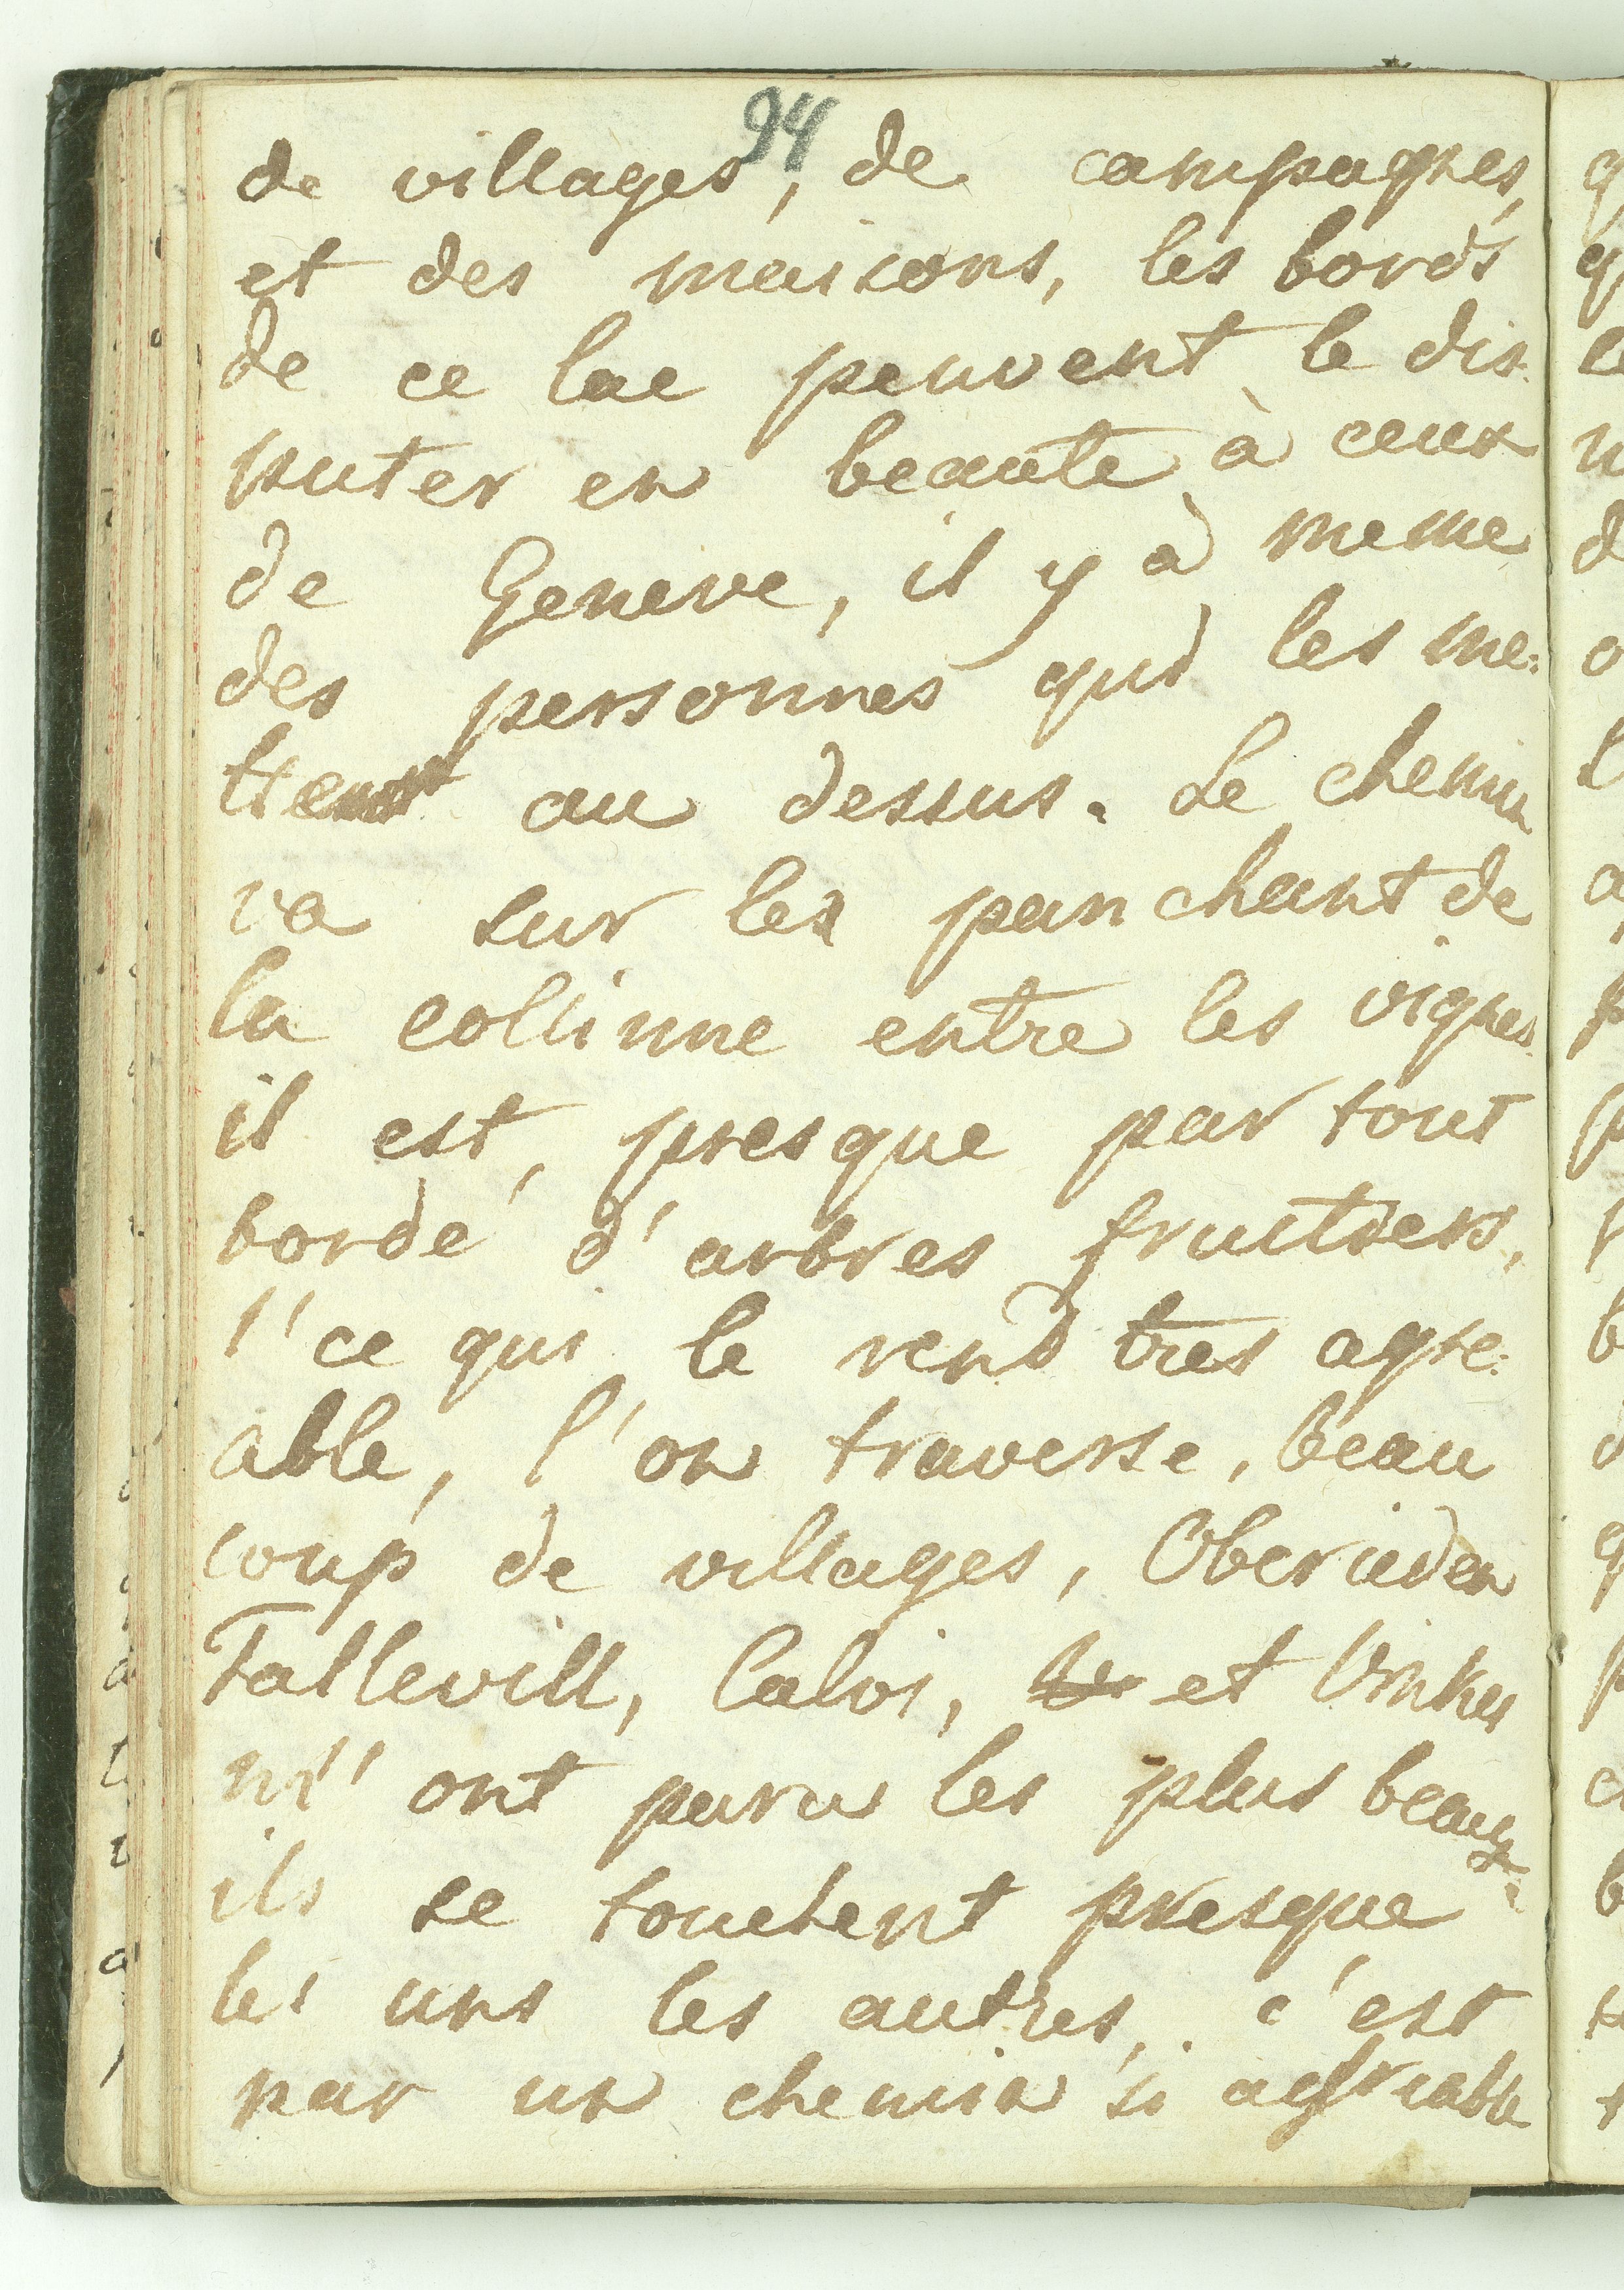 94
de villages, de campagnes,
et des maisons, les bords
de ce lac peuvent le dis-
puter en beaute à ceux
de Geneve, il y à meme
des personnes qui les me-
ttent au dessus. Le chemin
va sur les panchant de
la collinne entre les vignes.
il est, presque par tout
bordé d'arbres fruitiers,
l'ce qui le rend tres agre-
able, l'on traverse, beau
coup de villages, Oberieden
Tallevill, Calvi, et
m'ont paru les plus beaux.
ils se touchent presque
les uns les autres, c'est
par un chemin si agreable